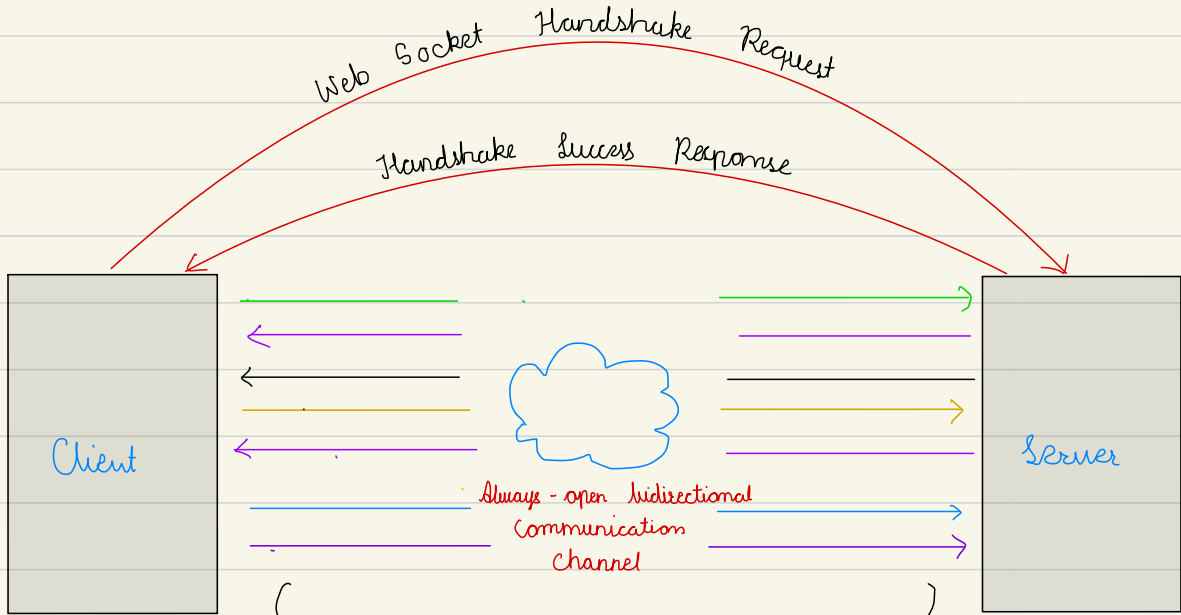 Web Socket Handshake Request
Handshake Success Response
Client
Server
Always-open bidirectional
Communication
Channel
( )